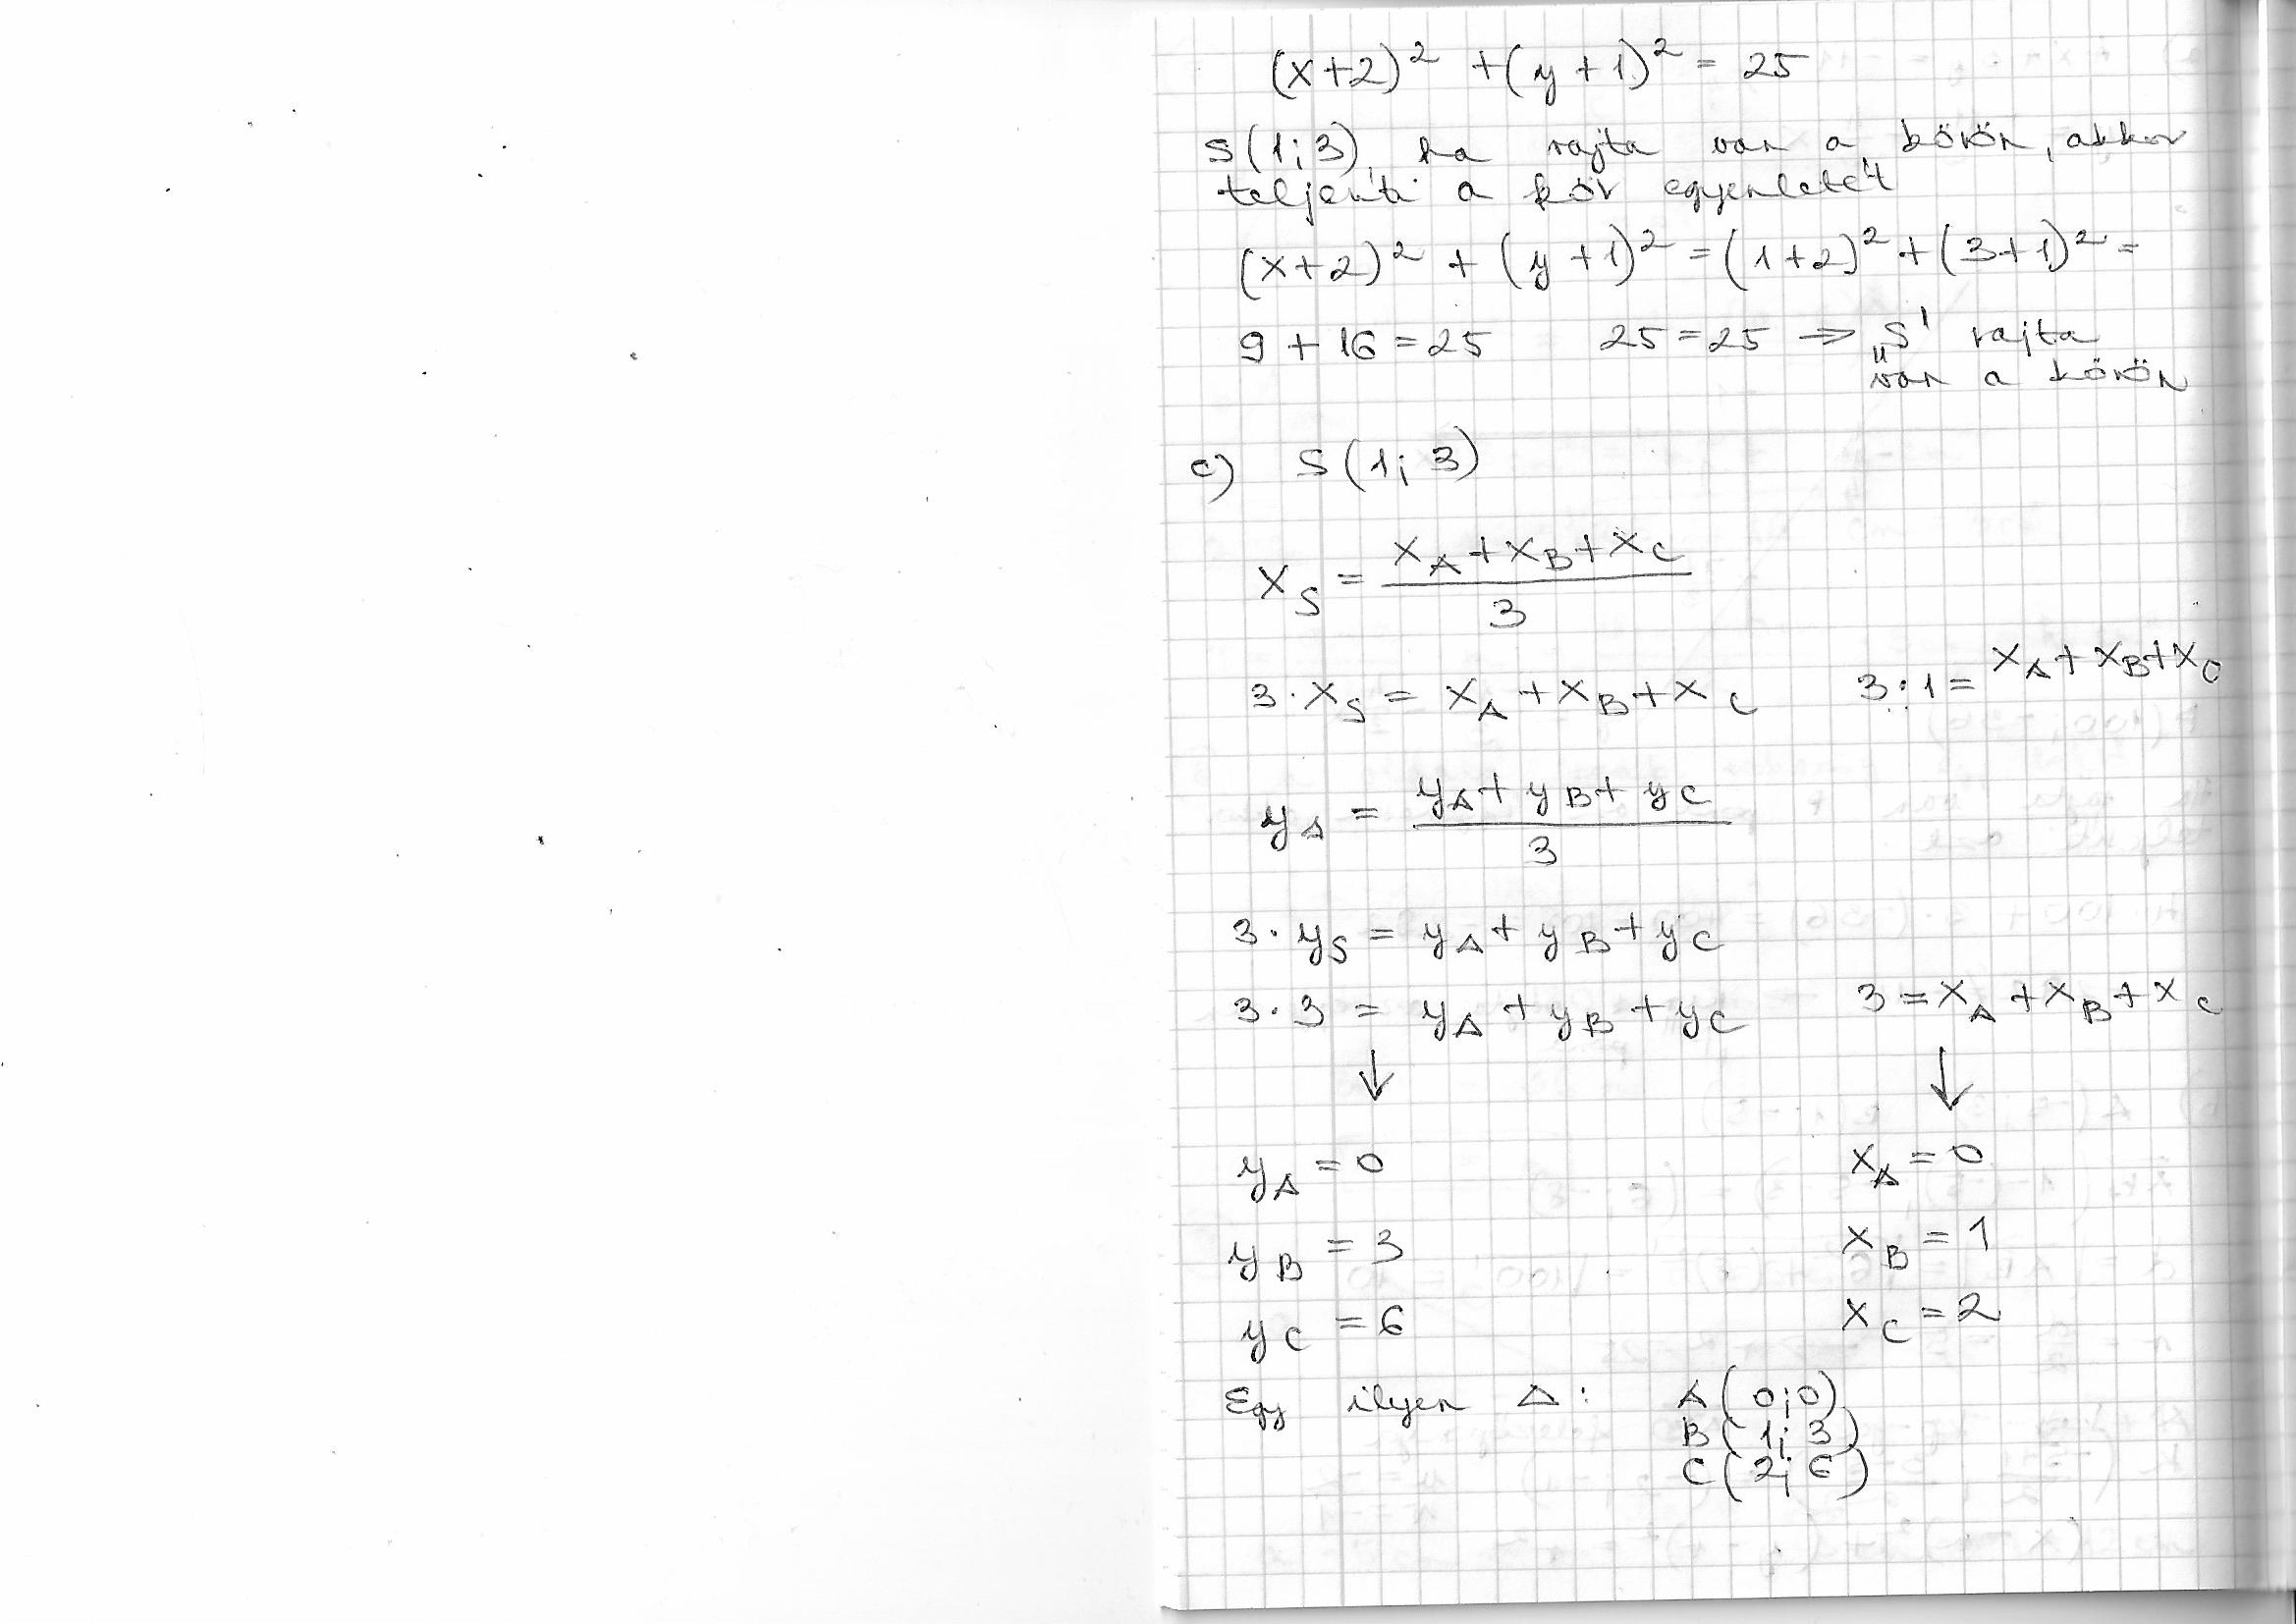 (x+2)² + (y+1)² = 25
S(1;3), ha rajta van a körön, akkor
teljesíti a kör egyenletét
(x+2)² + (y+1)² = (1+2)² + (3+1)² =
9 + 16 = 25 25 = 25 ⇒ „S" rajta
van a körön
c) S(1;3)
x_S = (x_A + x_B + x_C) / 3
3·x_S = x_A + x_B + x_C 3·1 = x_A + x_B + x_C
y_S = (y_A + y_B + y_C) / 3
3·y_S = y_A + y_B + y_C
3·3 = y_A + y_B + y_C 3 = x_A + x_B + x_C
↓ ↓
y_A = 0 x_A = 0
y_B = 3 x_B = 1
y_C = 6 x_C = 2
Egy ilyen Δ: A(0;0)
B(1;3)
C(2;6)